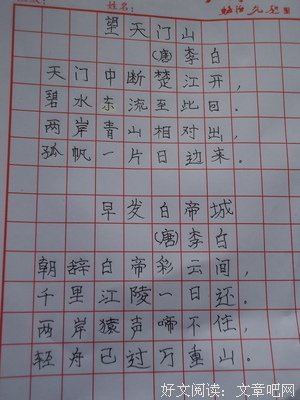 姓名:
望天门山
(唐)李白
天门中断楚江开,
碧水东流至此回。
两岸青山相对出,
孤帆一片日边来。
早发白帝城
(唐)李白
朝辞白帝彩云间,
千里江陵一日还。
两岸猿声啼不住,
轻舟已过万重山。
好文阅读:文章吧网